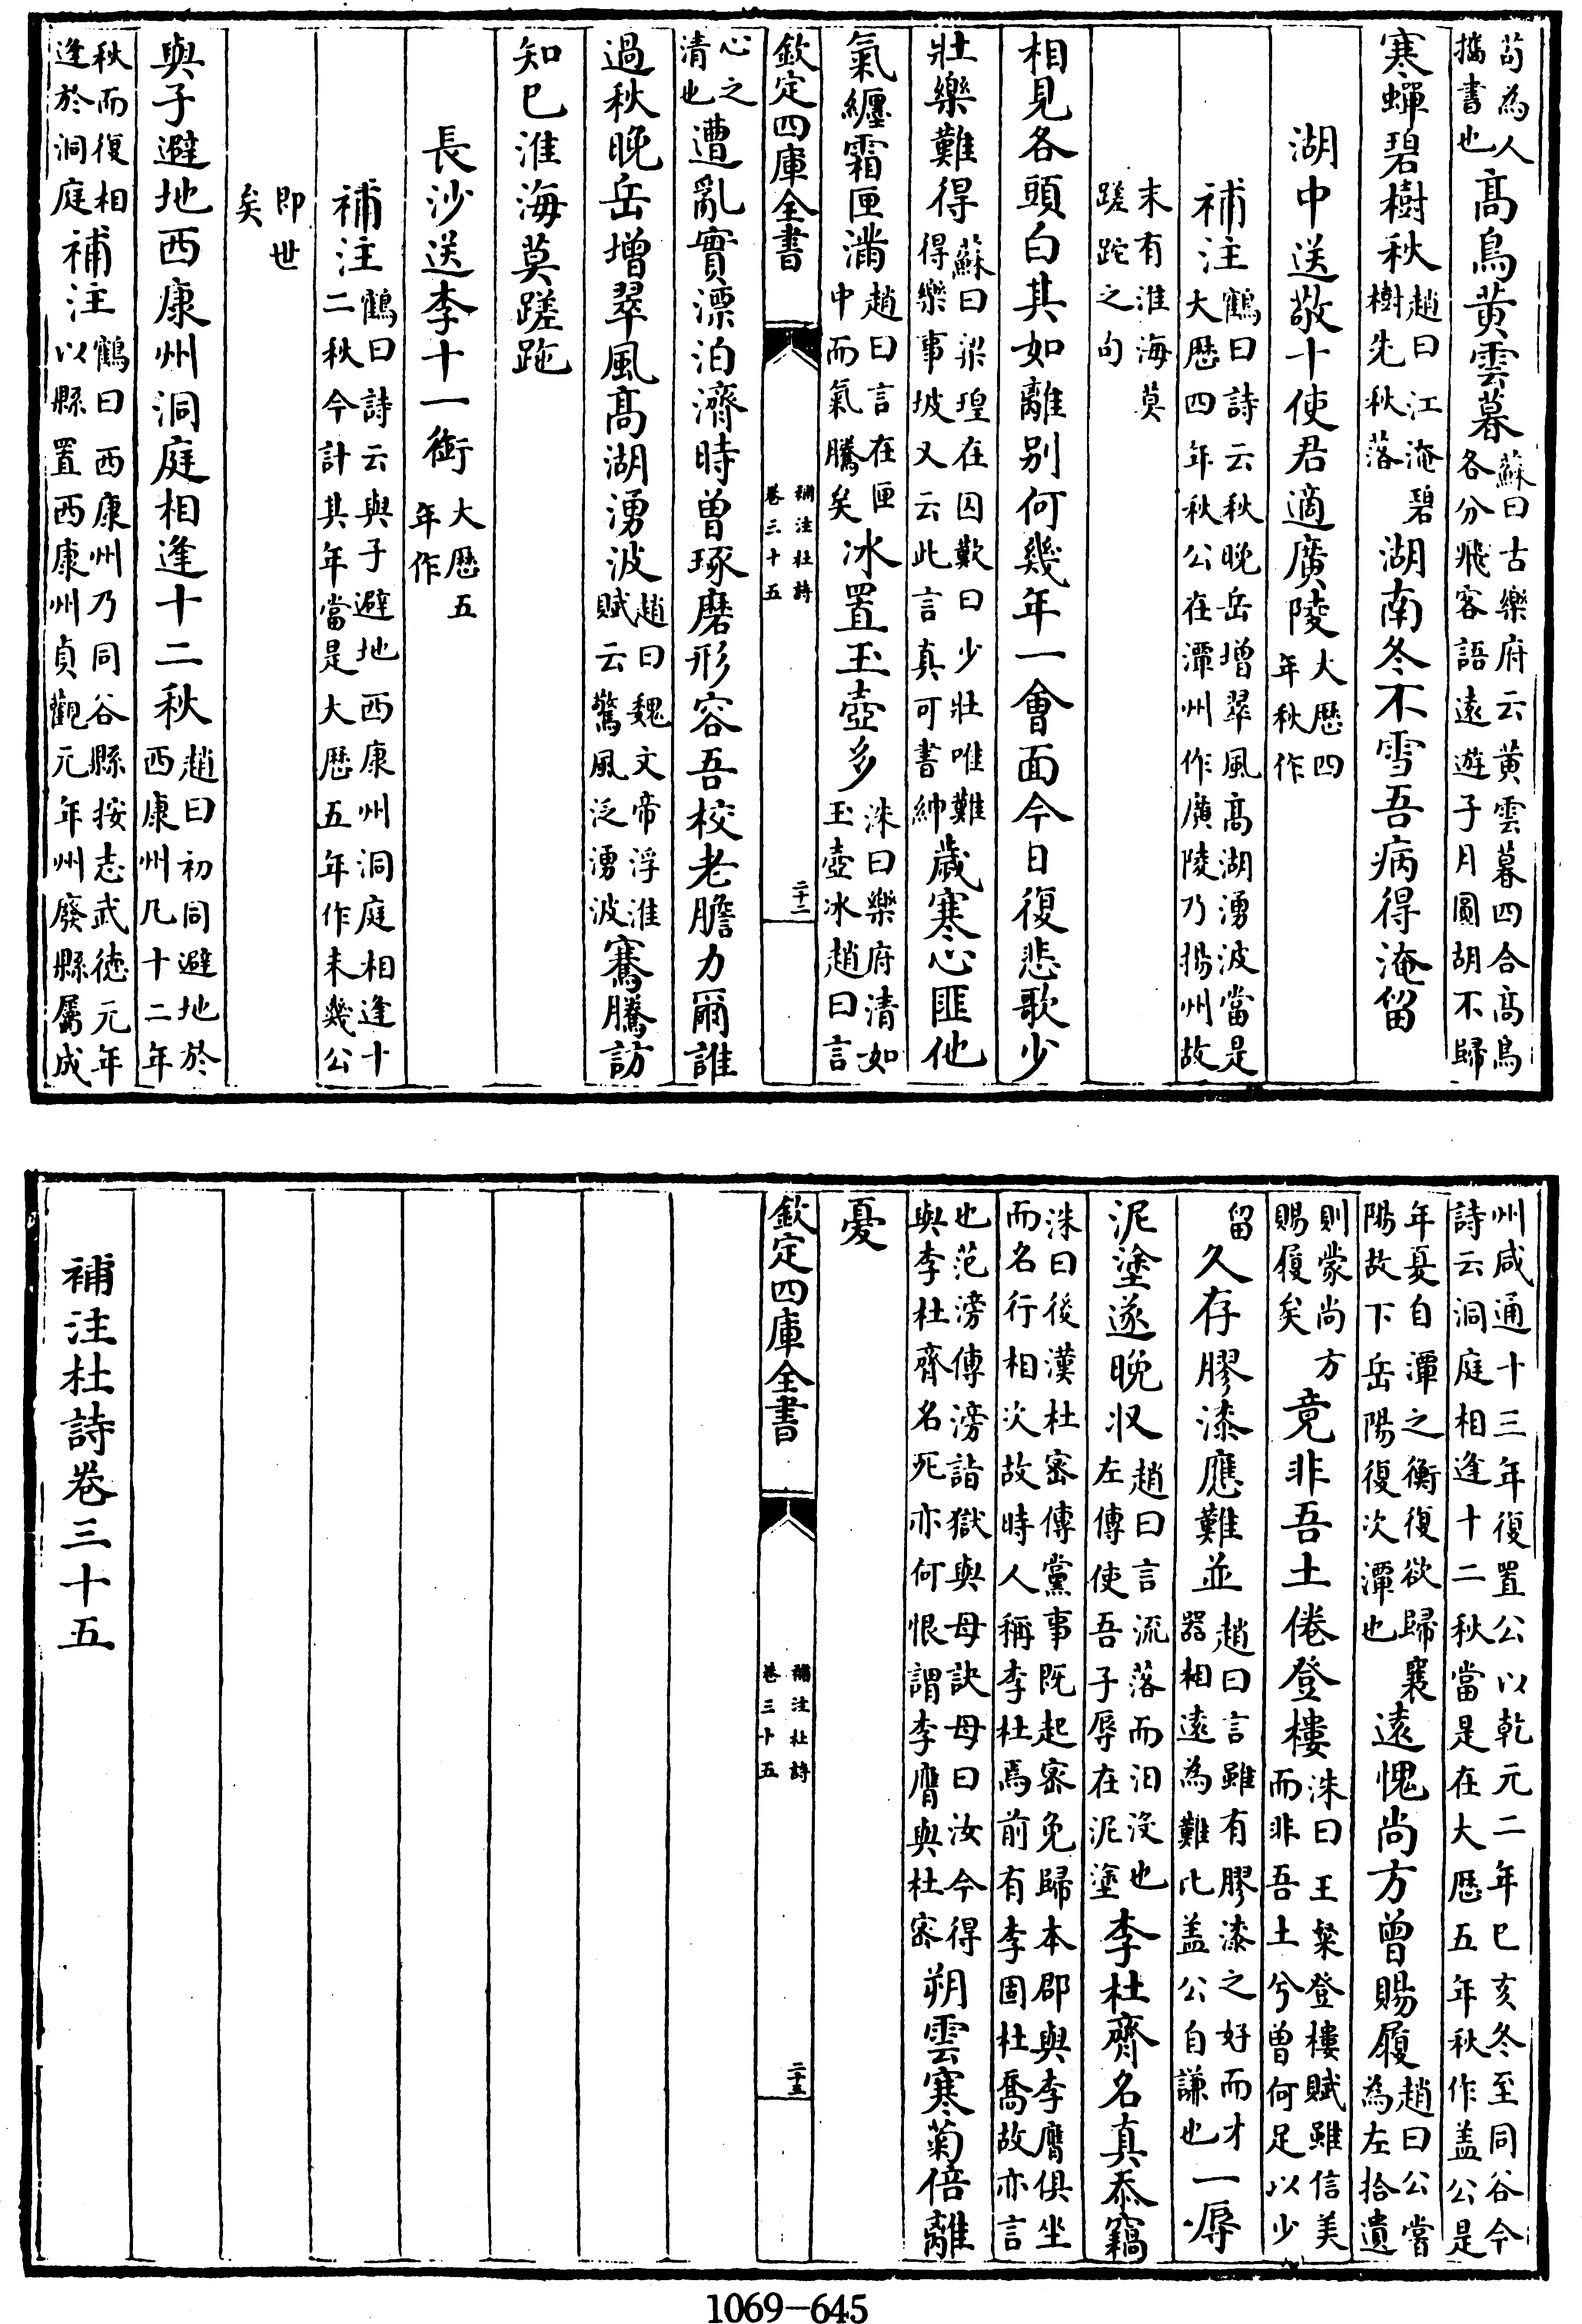 茍為人擕書也髙鳥黃雲暮蘇曰古樂府云黃雲暮四合髙鳥各分飛客語遠遊子月圓胡不歸
寒蟬碧樹秋趙曰江淹碧樹先秋落湖南冬不雪吾病得淹留
湖中送敬十使君適廣陵大厯四年秋作
補注鶴曰詩云秋晚岳增翠風髙湖湧波當是大厯四年秋公在潭州作廣陵乃揚州故
末有淮海莫蹉跎之句
相見各頭白其如離别何幾年一會面今日復悲歌少
壯樂難得蘇曰梁瑝在囚歎曰少壯唯難得樂事坡又云此言真可書紳歲寒心匪他
氣纏霜匣滿趙曰言在匣中而氣騰矣冰置玉壺多洙曰樂府清如玉壺冰趙曰言
欽定四庫全書 補注杜詩 卷三十五 二十二
心之清也遭亂實漂泊濟時曽琢磨形容吾校老膽力爾誰
過秋晚岳增翠風髙湖湧波趙曰魏文帝浮淮賦云驚風泛湧波騫騰訪
知已淮海莫蹉跎
長沙送李十一銜大厯五年作
補注鶴曰詩云與子避地西康州洞庭相逢十二秋今計其年當是大厯五年作未幾公
即世矣
與子避地西康州洞庭相逢十二秋趙曰初同避地於西康州凡十二年
秋而復相逢於洞庭補注鶴曰西康州乃同谷縣按志武徳元年以縣置西康州貞觀元年州廢縣屬成
州咸通十三年復置公以乾元二年已亥冬至同谷今詩云洞庭相逢十二秋當是在大厯五年秋作盖公是
年夏自潭之衡復欲歸襄陽故下岳陽復次潭也逺愧尚方曽賜履趙曰公嘗為左拾遺
則蒙尚方賜履矣竟非吾土倦登樓洙曰王粲登樓賦雖信美而非吾土兮曽何足以少
留久存膠漆應難並趙曰言雖有膠漆之好而才器相遠為難比盖公自謙也一辱
泥塗遂晚収趙曰言流落而汩沒也左傳使吾子辱在泥塗李杜齊名真忝竊
洙曰後漢杜密傳黨事既起密免歸本郡與李膺俱坐而名行相次故時人稱李杜焉前有李固杜喬故亦言
也范滂傳滂詣獄與母訣母曰汝今得與李杜齊名死亦何恨謂李膺與杜密朔雲寒菊倍離
憂
欽定四庫全書 補注杜詩 卷三十五 二十三
補注杜詩卷三十五
1069-645